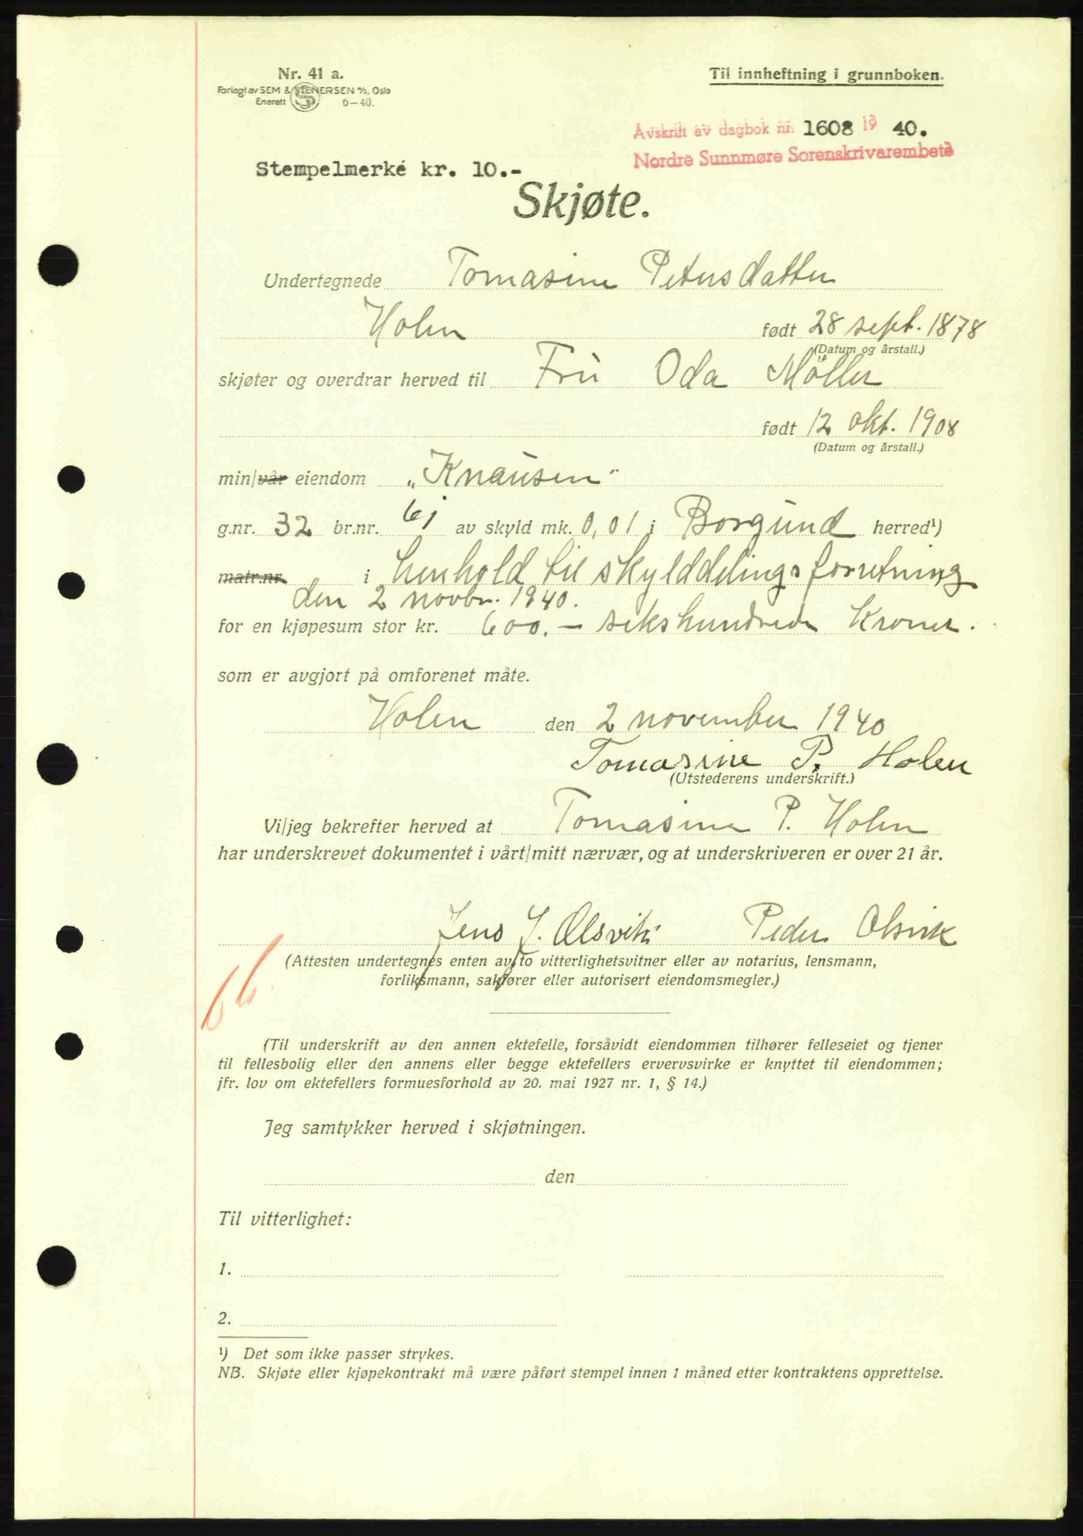 Nr. 41 a.
Forlagt av SEM & STENERSEN A/S, Oslo
Enerett 6-40.
Til innheftning i grunnboken.
Avskrift av dagbok nr. 1608 19 40.
Nordre Sunnmøre Sorenskrivarembete
Stempelmerke kr. 10.-
Skjøte.
Undertegnede Tomasine Petersdatter
Holen født 28 sept. 1878
(Datum og årstall.)
skjøter og overdrar herved til Fru Oda Möller
født 12 okt. 1908
(Datum og årstall.)
min/vår eiendom „Knausen"
g.nr. 32 br.nr. 61 av skyld mk. 0,01 i Borgund herred¹)
matr.nr. i henhold til skylddelingsforretning
den 2 novbr. 1940.
for en kjøpesum stor kr. 600.- sekshundrede Kroner.
som er avgjort på omforenet måte.
Holen den 2 november 1940
Tomasine P. Holen
(Utstederens underskrift.)
Vi/jeg bekrefter herved at Tomasine P. Holen
har underskrevet dokumentet i vårt/mitt nærvær, og at underskriveren er over 21 år.
Jens J. Olsvik Peder Olsvik
(Attesten undertegnes enten av to vitterlighetsvitner eller av notarius, lensmann,
forliksmann, sakfører eller autorisert eiendomsmegler.)
66.
(Til underskrift av den annen ektefelle, forsåvidt eiendommen tilhører felleseiet og tjener
til fellesbolig eller den annens eller begge ektefellers ervervsvirke er knyttet til eiendommen;
jfr. lov om ektefellers formuesforhold av 20. mai 1927 nr. 1, § 14.)
Jeg samtykker herved i skjøtningen.
den
Til vitterlighet:
1.
2.
¹) Det som ikke passer strykes.
NB. Skjøte eller kjøpekontrakt må være påført stempel innen 1 måned etter kontraktens opprettelse.